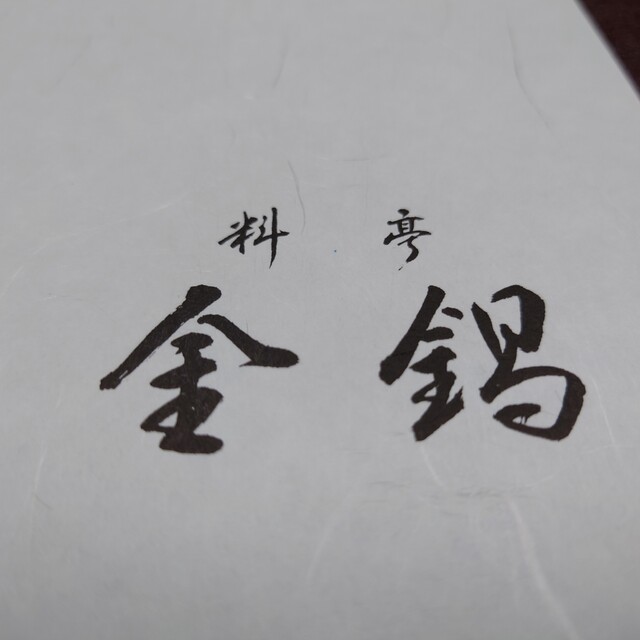 料亭
金鍋